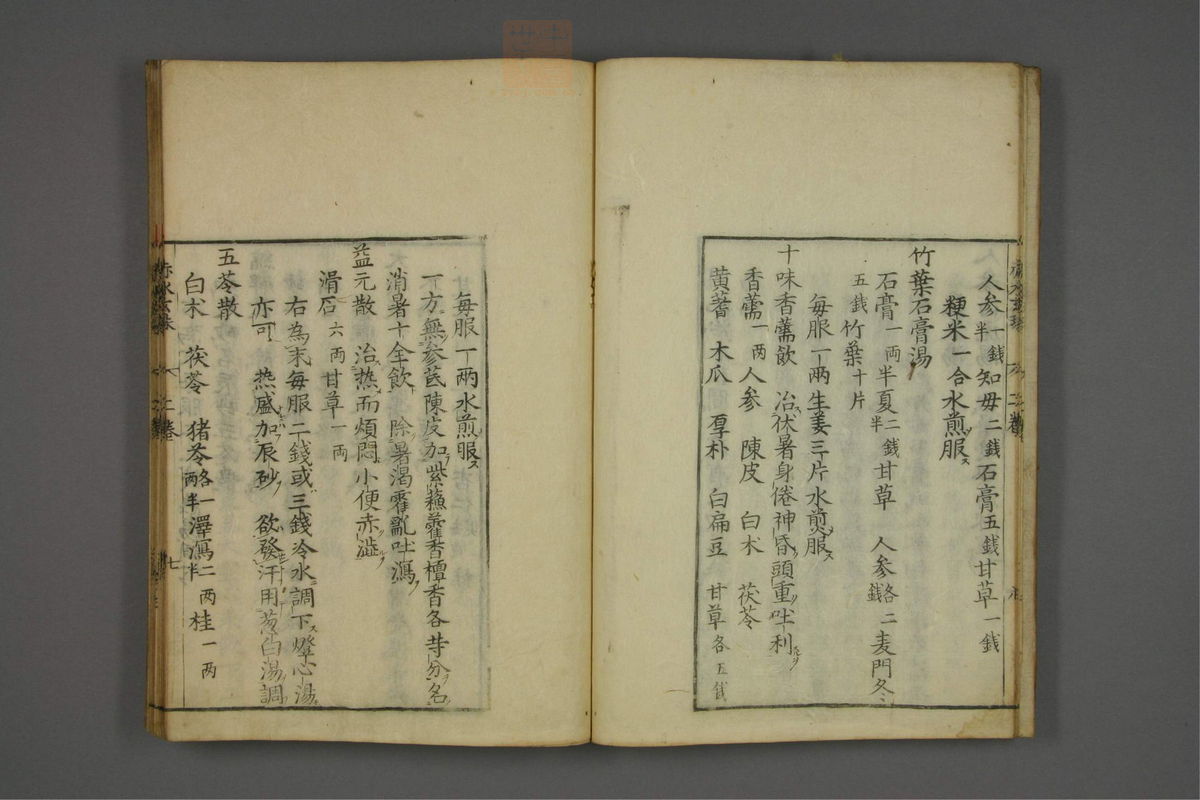 人参一錢半知母二錢石膏五錢甘草一錢
粳米一合水煎服ス
竹葉石膏湯
石膏一両半夏二錢半甘草 人参各二錢麦門冬
五錢竹葉十片
毎服一兩生姜三片水煎服ス
十味香薷飲 治伏暑身倦神昏頭重吐利
香薷一两人参 陳皮 白术 茯苓
黄蓍 木瓜 厚朴 白扁豆 甘草各五錢
毎服一兩水煎服ス
一方無参芪陳皮加紫蘓藿香檀香各等分名
消暑十全飲 除暑渇霍亂吐瀉
益元散 治热而煩悶小便赤澁
滑石六両甘草一両
右為末毎服二錢或三錢冷水調下燈心湯
亦可 热盛加辰砂 欲發汗用葱白湯調
五苓散
白术 茯苓 猪苓各一两半澤瀉二两半桂一两
二巻
七